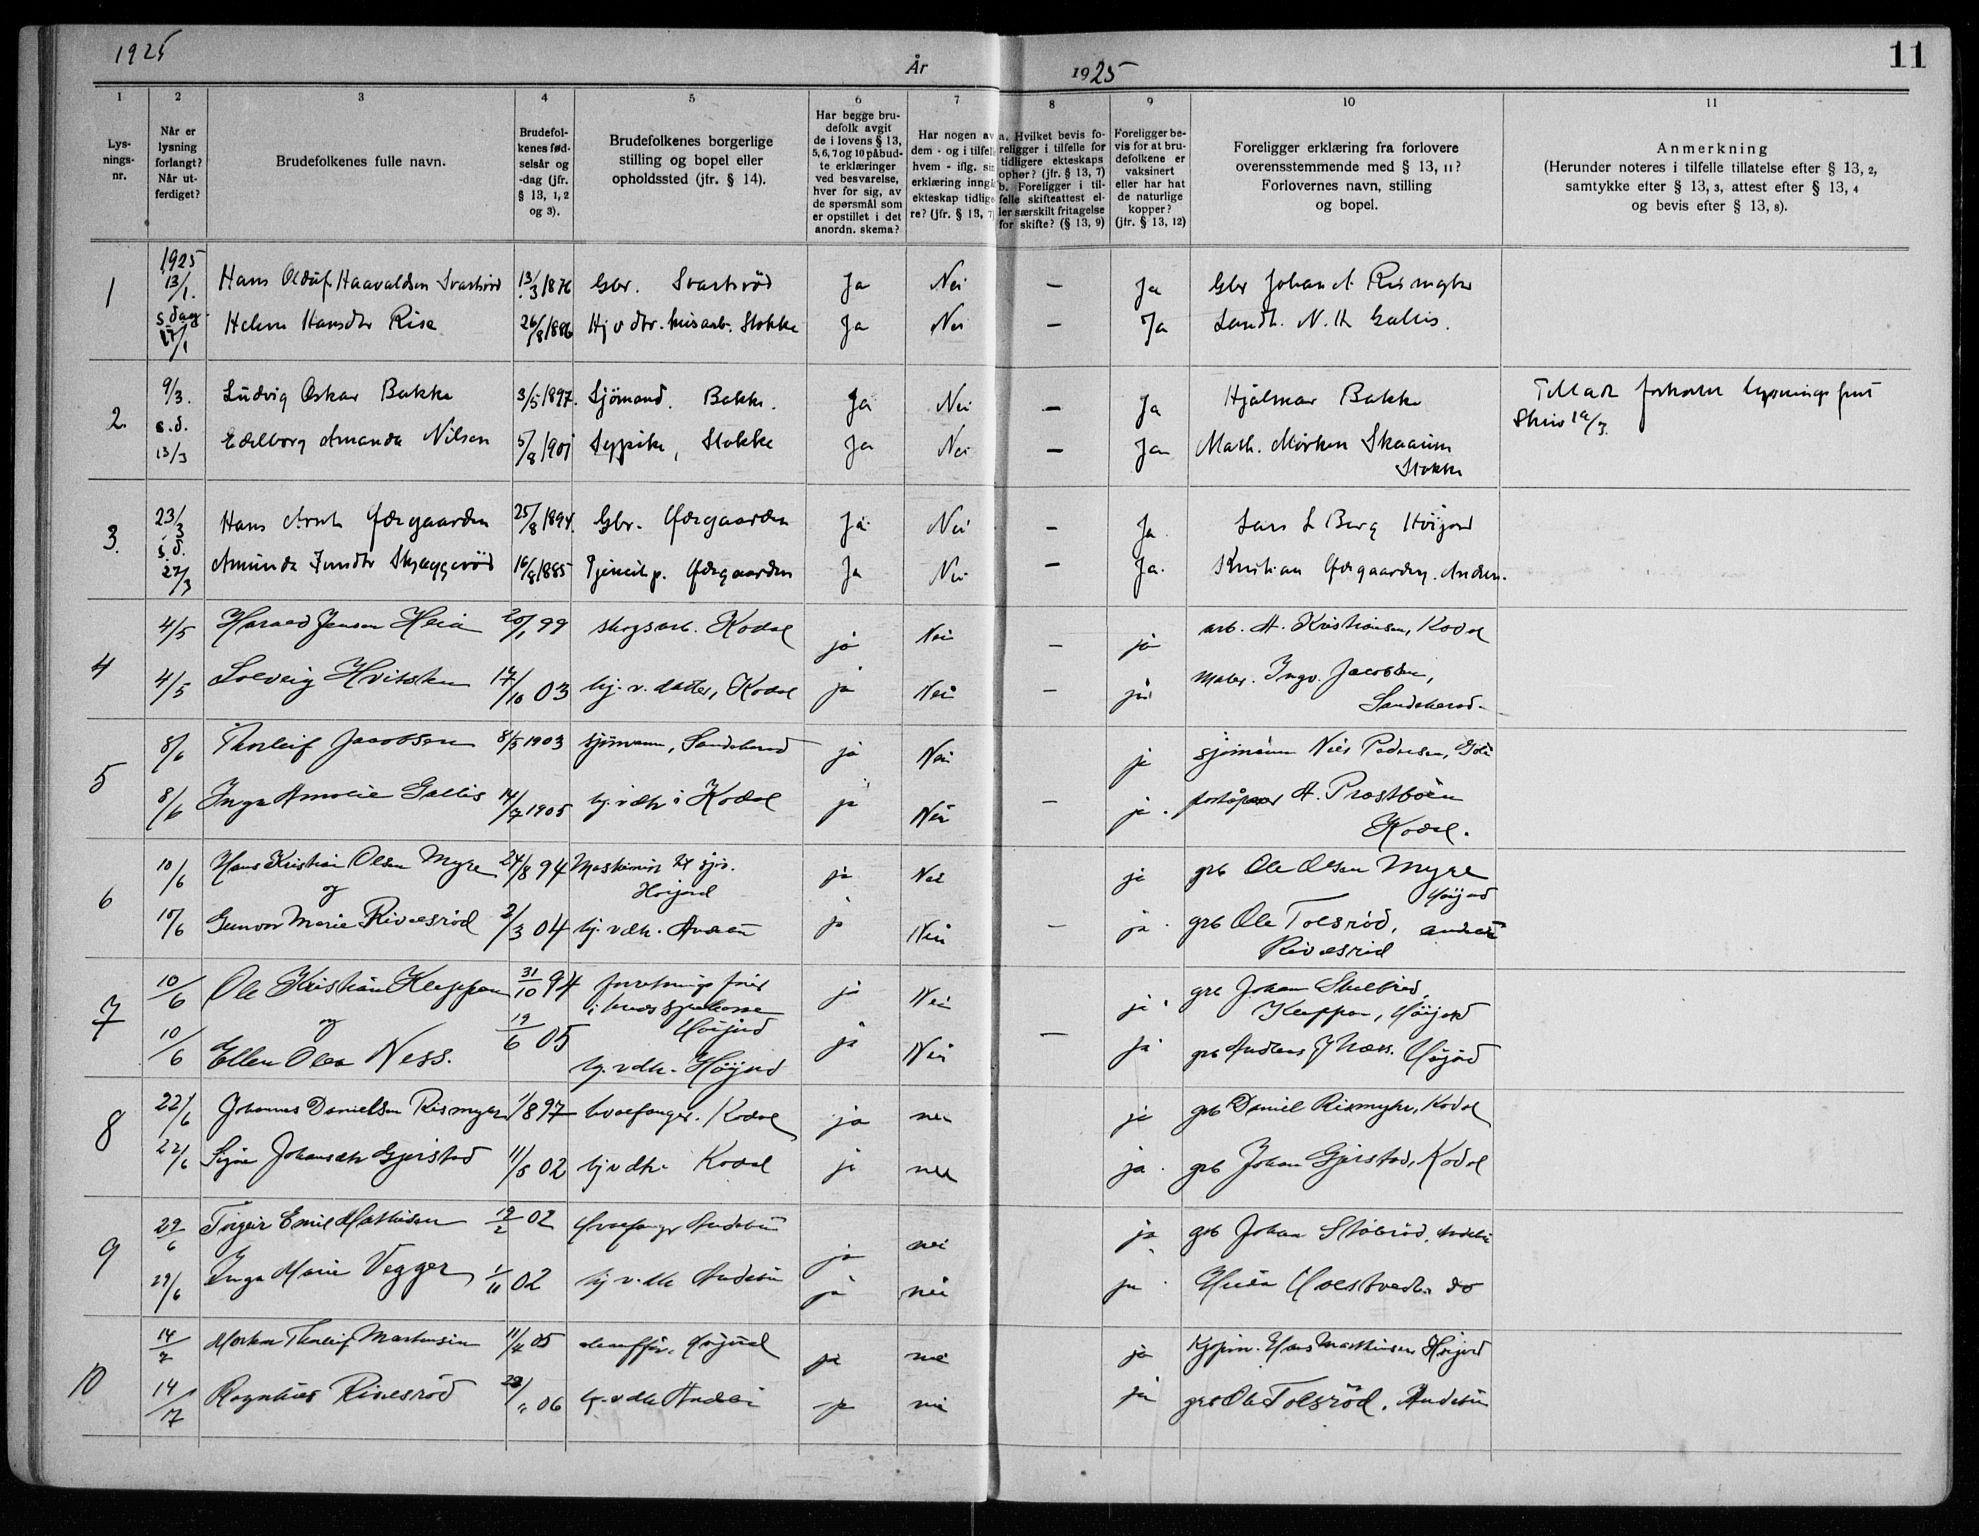 1925 År 1925 11
1 2 3 4 5 6 7 8 9 10 11
Lys-
nings-
nr.
Når er
lysning
forlangt?
Når ut-
ferdiget?
Brudefolkenes fulle navn.
Brudefol-
kenes fød-
selsår og
-dag (jfr.
§ 13, 1, 2
og 3).
Brudefolkenes borgerlige
stilling og bopel eller
opholdssted (jfr. § 14).
Har begge bru-
defolk avgit
de i lovens § 13,
5, 6, 7 og 10 påbud-
te erklæringer
ved besvarelse,
hver for sig, av
de spørsmål som
er opstillet i det
anordn. skema?
Har nogen av
dem - og i tilfelle
hvem - iflg. sin
erklæring inngå
ekteskap tidlige-
re? (jfr. § 13, 7)
a. Hvilket bevis fo-
religger i tilfelle for
tidligere ekteskaps
ophør? (jfr. § 13, 7)
b. Foreligger i til-
felle skifteattest el-
ler særskilt fritagelse
for skifte? (§ 13, 9)
Foreligger be-
vis for at bru-
defolkene er
vaksinert
eller har hat
de naturlige
kopper?
(jfr. § 13, 12)
Foreligger erklæring fra forlovere
overensstemmende med § 13, 11?
Forlovernes navn, stilling
og bopel.
Anmerkning
(Herunder noteres i tilfelle tillatelse efter § 13, 2,
samtykke efter § 13, 3, attest efter § 13, 4
og bevis efter § 13, 8).
1 1925 13/1. Hans Oluf Haavaldsen Svartsrød 13/3 1876 Gbr. Svartsrød Ja Nei — Ja Gbr Johan A. Rismyhr
s. dag 17/1 Helene Hansdtr Rise 26/8 1886 Hj v dtr. Stokke Ja Nei — Ja Landh. N. H. Gallis.
2. 9/3. Ludvig Oskar Bakke 3/5 1897. Sjömand. Bakke. Ja Nei — Ja Hjalmar Bakke
s.d. 13/3 Edelborg Amanda Nilsen 5/8 1901 Sypike, Stokke Ja Nei — Ja Math. Mörken Skaaum
Stokke
3. 23/3 Hans Arnt Gjergaarden 25/8 1894. Gbr. Gjergaarden Ja Nei — Ja Lars L Berg Höijord
s.d. 27/3 Amunda Skjeggerød 16/8 1885 Tjenestp. Gjergaarden Ja Nei — Ja. Kristian Gjergaarden. Andeb.
4 4/5 Harald Jensen Heia 20/1 99 skogsarb. Kodal ja Nei — ja arb. A. Kristiansen, Kodal
4/5 Solveig Hvitstein 17/10 03 hj. v. datter, Kodal ja Nei — ja maler. Ingv. Jacobsen,
Sandeherad
5 8/6 Thorleif Jacobsen 8/5 1903 sjömann, Sandeherad ja Nei ja sjömann Nils Pedersen,
8/6 Inga Amalie Gallis 14/7 1905 hj. v dtr i Kodal ja Nei — ja. A. Præstbøen
Kodal.
6 10/6 Hans Kristian Olsen Myre 24/8 94 Maskinist til sjös. ja Nei ja grb Ole Olsen Myre
og Höijord Höijord
10/6 Gunvor Marie Rivelsrød 2/3 04 hj. v dtr. Andebu ja Nei — ja. grb Ole Tolsrød, Andebu
Rivelsrød
7 10/6 Ole Kristian Kleppan 31/10 94 forretningsfører ja Nei ja. grb Johan
og Höijord Kleppan, Höijord
10/6 Ellen Olea Ness. 19/6 05 hj. v dtr. Höijord ja Nei — ja grb Andreas J Næss. Höijord
8 22/6 Johannes Danielsen Rismyhr 1/8 97 hvalfanger. Kodal ja nei ja grb Daniel Rismyhr, Kodal
22/6 Signe Johansdtr Gjerstad 11/5 02 hj v dtr Kodal ja nei ja. grb Johan Gjerstad, Kodal
9 29/6 Torgeir Emil Mathisen 19/2 02 Hvalfanger Andebu ja nei ja grb Johan Andebu
29/6 Inga Marie Vegger 1/11 02 hj v. dtr Andebu ja nei ja. do
10 14/7 Thorleif Marthinsen 11/4 05 chauffør. Höijord ja nei ja Kjøpm. Hans Marthinsen Höijord
14/7 Ragnhild Rivelsrød 06 hj. v dtr Andebu ja nei ja grb Ole Tolsrød. Andebu